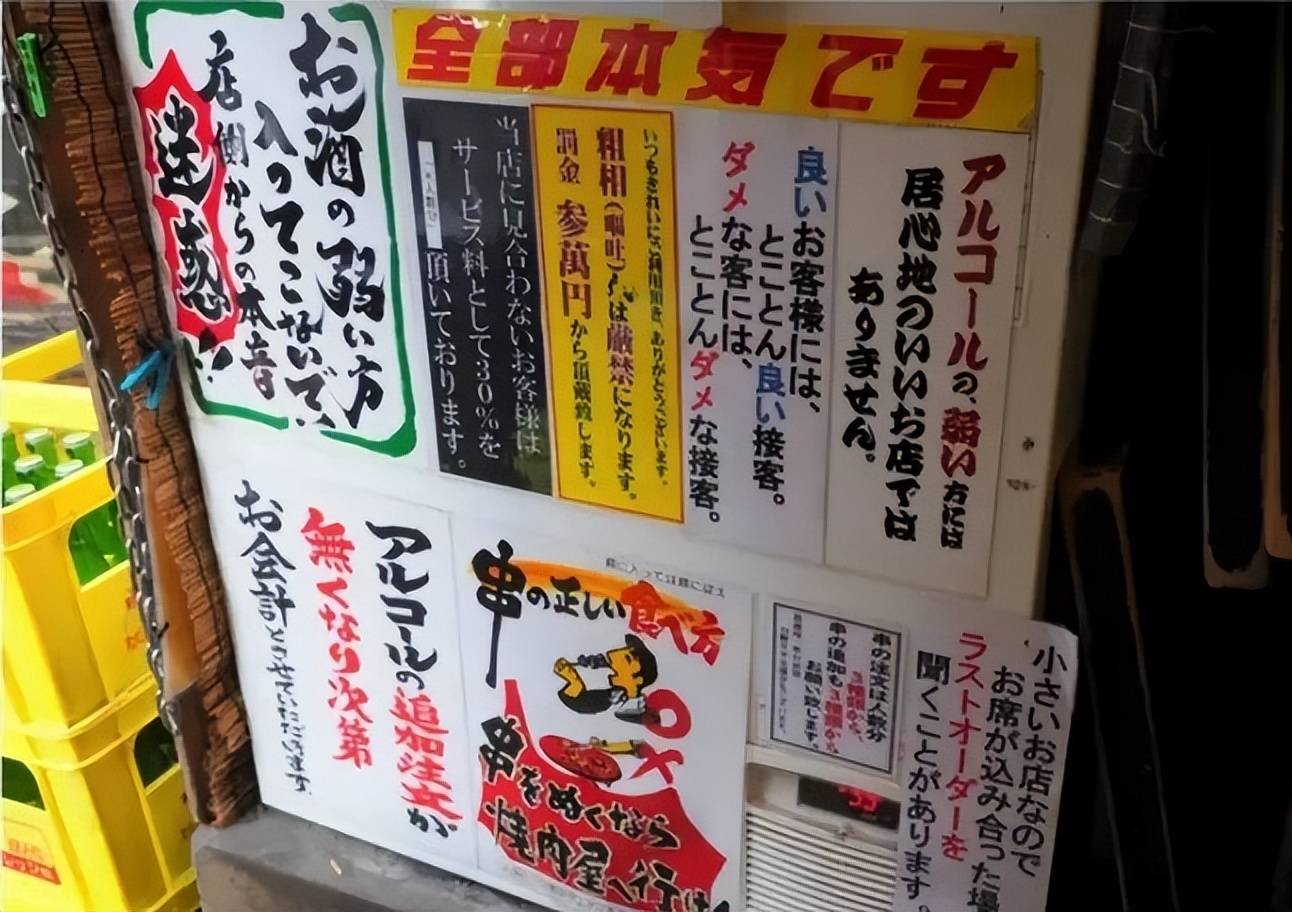 全部本気です
アルコールの、弱い方には
居心地のいいお店では
ありません。
良いお客様には、
とことん良い接客。
ダメな客には、
とことんダメな接客。
いつもきれいにご利用頂き、ありがとうございます。
粗相(嘔吐)等は厳禁になります。
罰金 参萬円から頂戴致します。
当店に見合わないお客様は
サービス料として30%を
頂いております。
お酒の弱い方
入ってこないで
店側からの本音
迷惑
小さいお店なので
お席が込み合った場
ラストオーダーを
聞くことがあります。
串の注文は人数分
3種類から、
串の追加も3種類から
お願い致します。
串の正しい食べ方
串をぬくなら
焼肉屋へ行け
アルコールの追加注文が
無くなり次第
お会計とさせていただいてます。